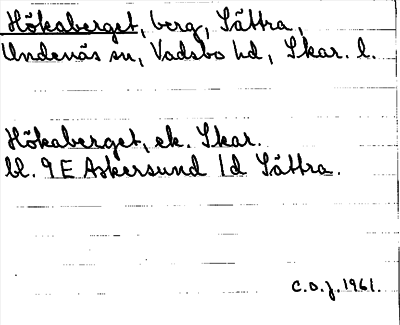 Hökaberget, berg, Sättra,
Undenäs sn, Vadsbo hd, Skar. l.
Hökaberget, ek. Skar.
bl. 9 E Askersund 1d Sättra.
C.O.J. 1961.